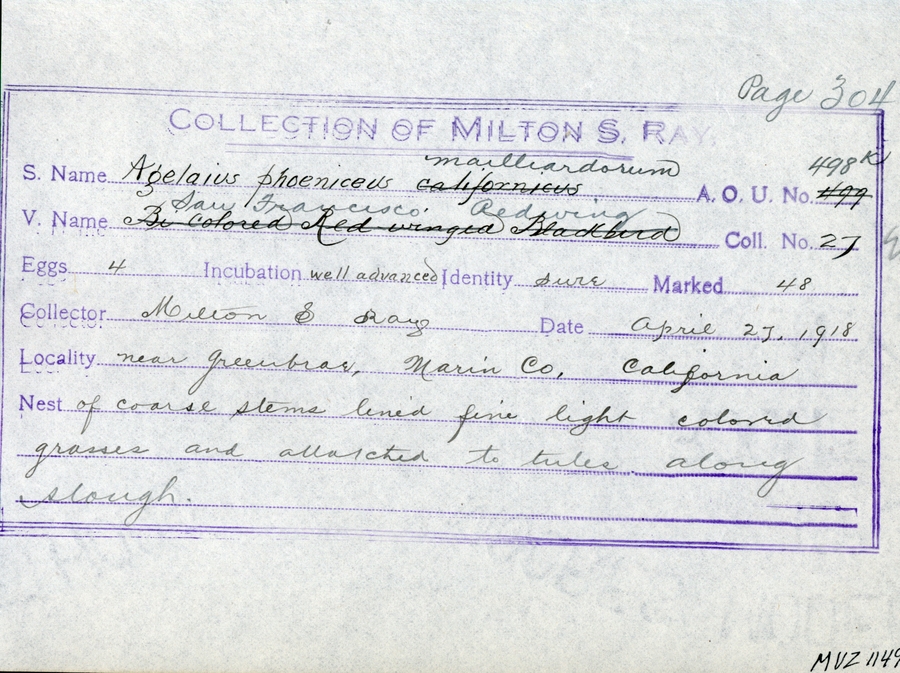 Page 304
COLLECTION OF MILTON S. RAY.
mailliardorum 498K
S. Name Agelaius phoeniceus californicus A. O. U. No. 499
San Francisco Redwing
V. Name Bi-colored Red-winged Blackbird Coll. No. 27
Eggs 4 Incubation well advanced Identity sure Marked 48
Collector Milton S Ray Date April 27, 1918
Locality near Greenbrae, Marin Co, California
Nest of coarse stems lined fine light colored
grasses and attatched to tules along
slough.
MVZ 1149